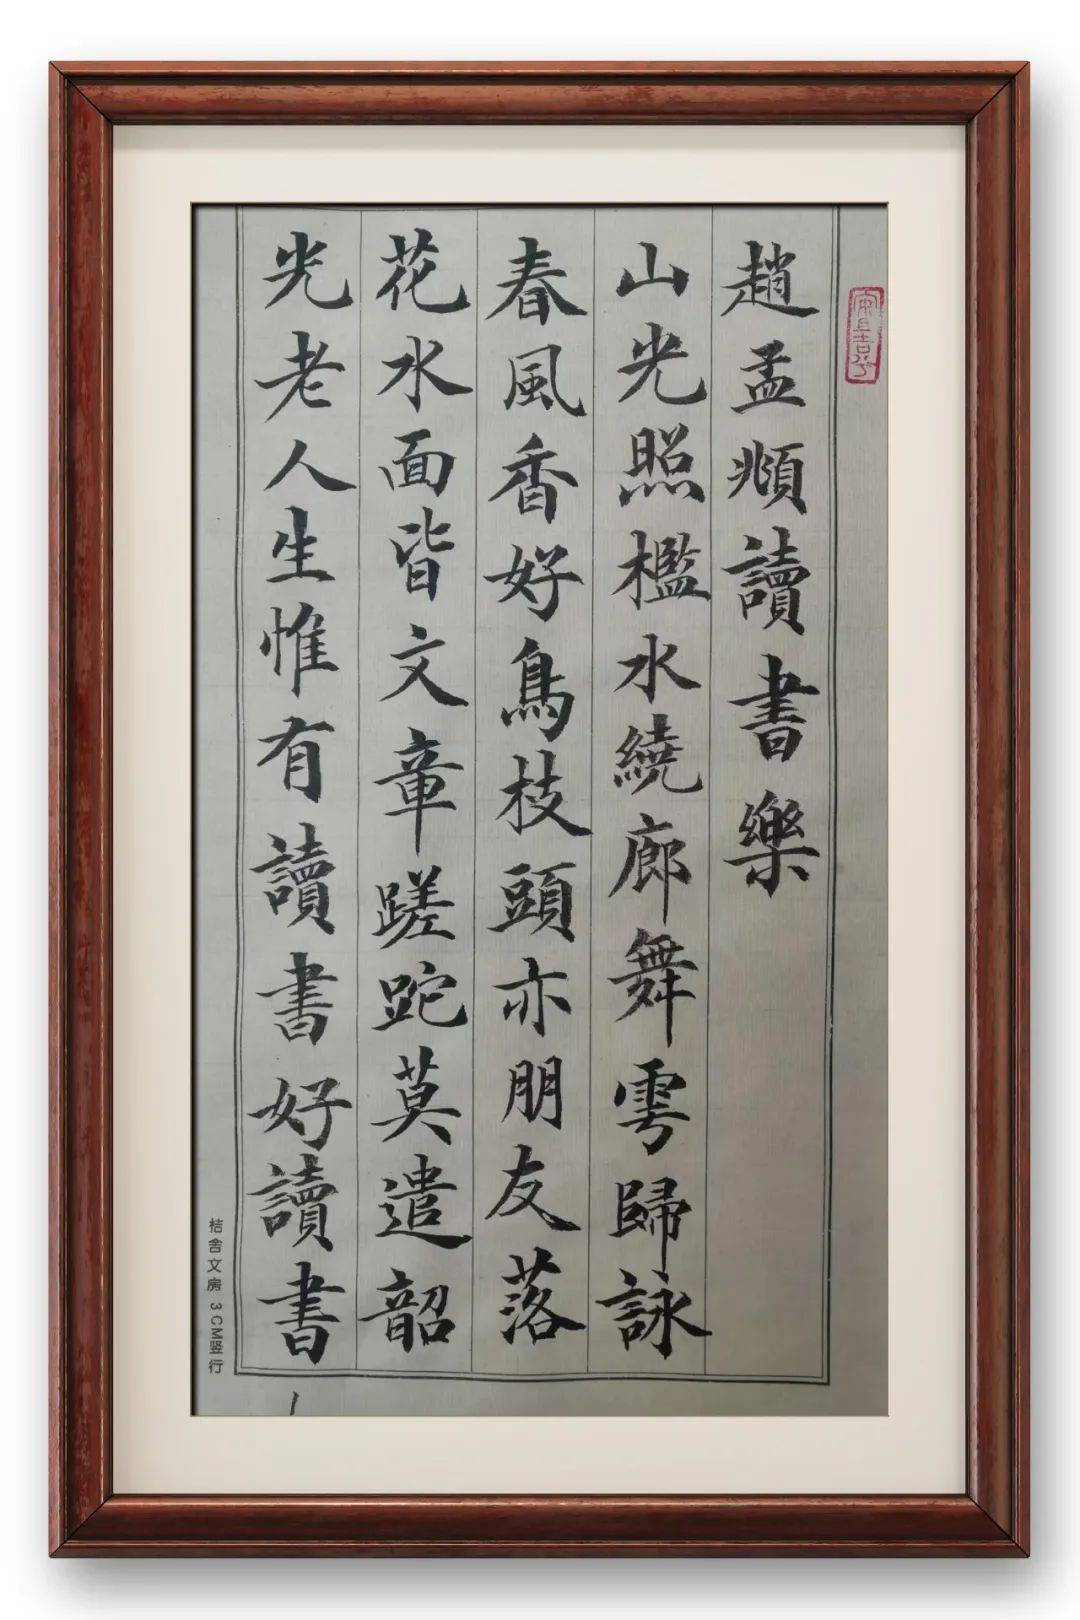 趙孟頫讀書樂
山光照檻水繞廊舞雩歸詠
春風香好鳥枝頭亦朋友落
花水面皆文章蹉跎莫遣韶
光老人生惟有讀書好讀書
桔舍文房 3CM竖行